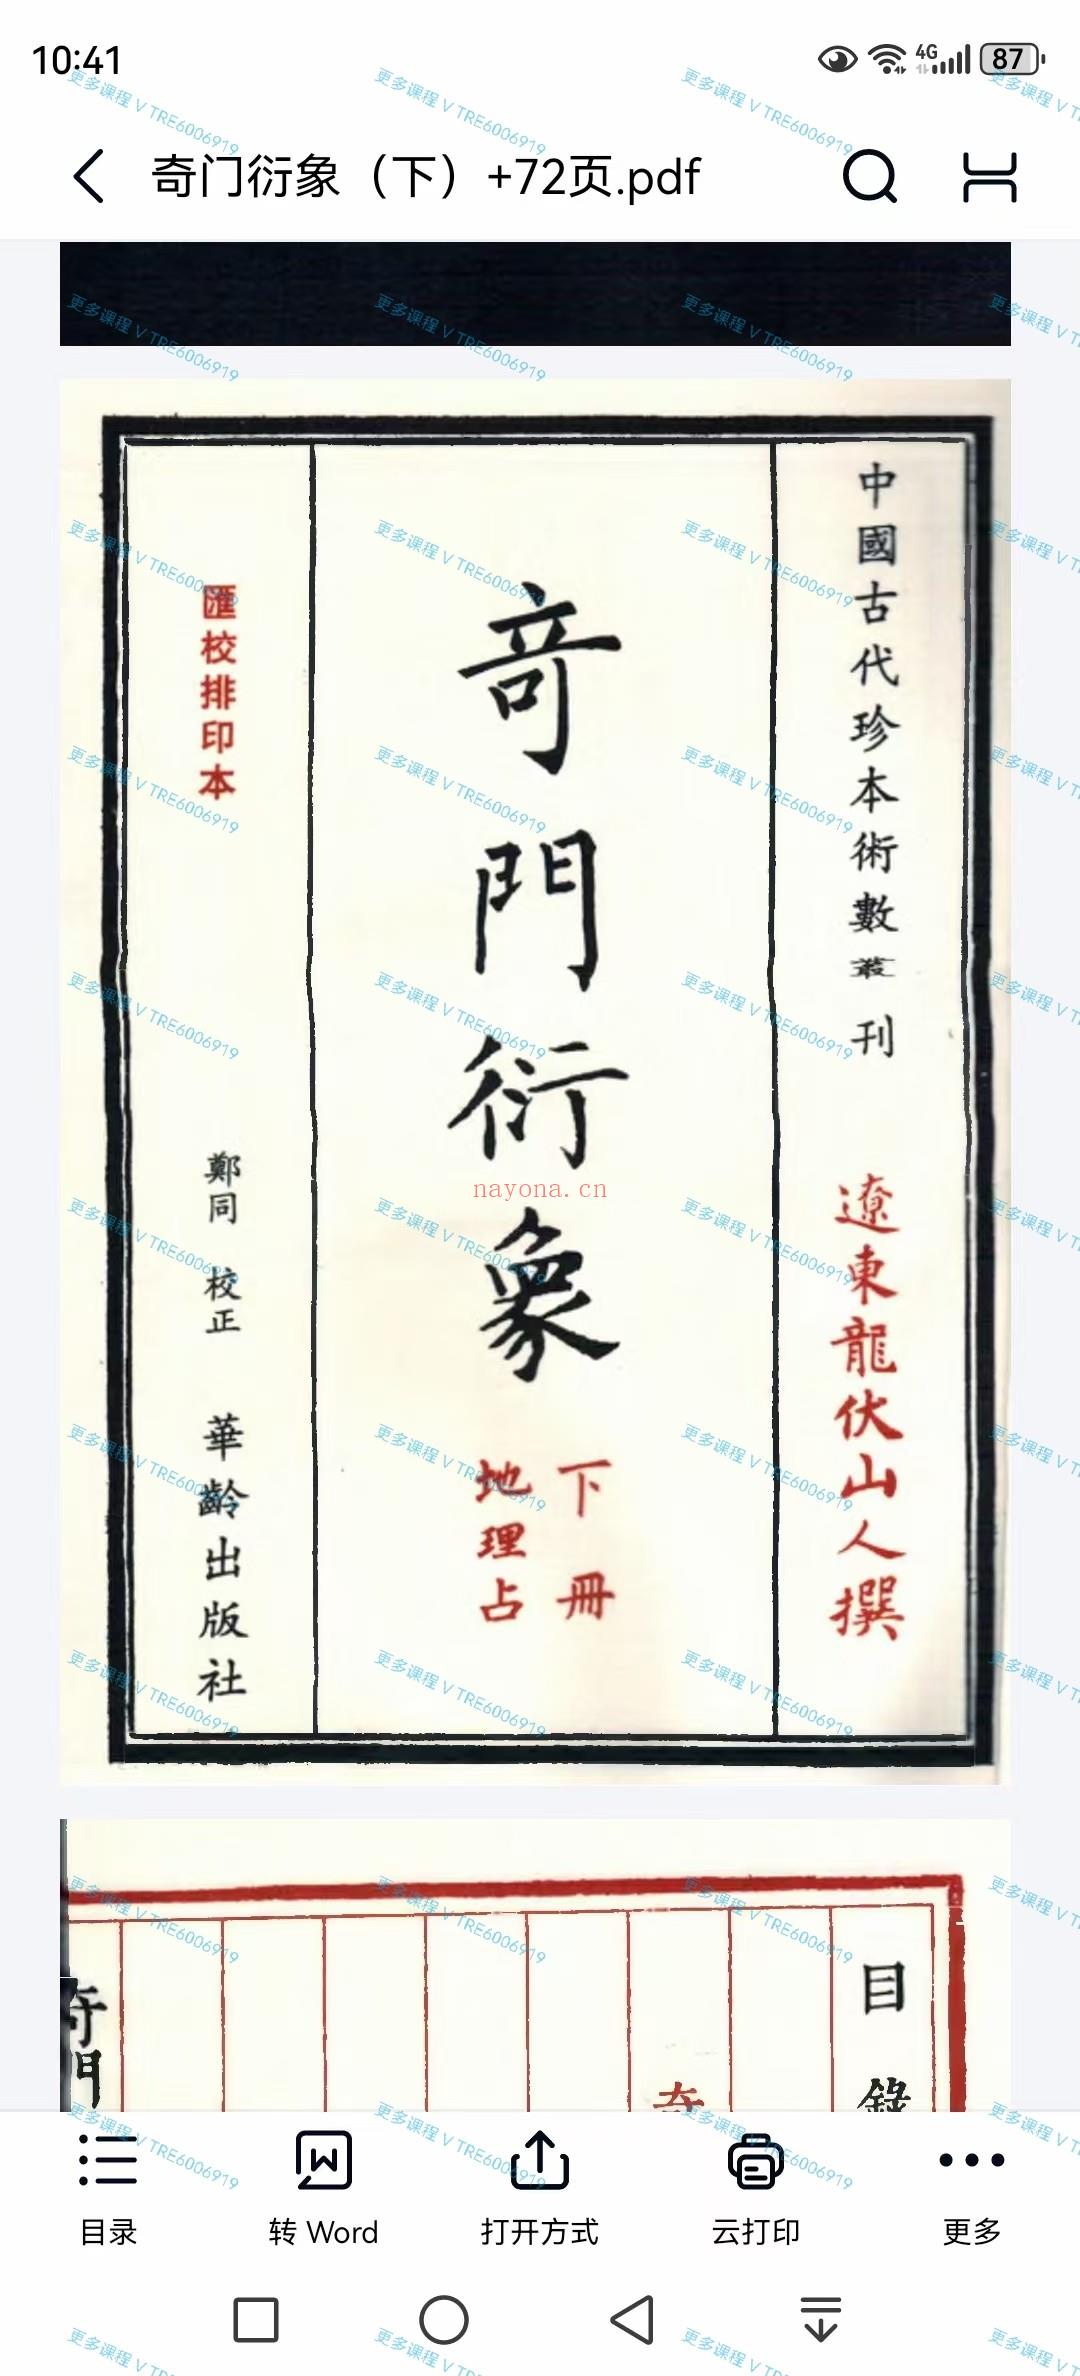 10:41
4G
87
奇门衍象（下）+72页.pdf
中國古代珍本術數叢刊
遼東龍伏山人撰
奇門衍象
下冊
地理占
匯校排印本
鄭同 校正
華齡出版社
nayona.cn
目錄
奇
奇門
目录
转 Word
打开方式
云打印
更多
更多课程 V TRE6006919